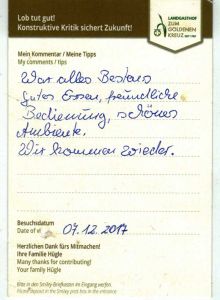 Lob tut gut!
Konstruktive Kritik sichert Zukunft!
LANDGASTHOF
ZUM
GOLDENEN
KREUZ
Mein Kommentar / Meine Tipps
My comments / tips
War alles Bestens
gutes Essen, freundliche
Bedienung, schönes
Ambiente.
Wir kommen wieder.
Besuchsdatum
Date of vi
09.12.2017
Herzlichen Dank fürs Mitmachen!
Ihre Familie Hügle
Many thanks for contributing!
Your family Hügle
Bitte in den Smiley-Briefkasten im Eingang werfen.
Please deposit in the Smiley post box in the entrance